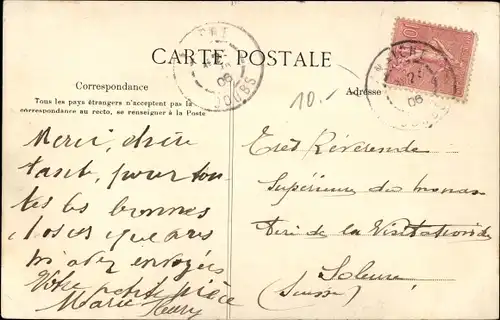 CARTE POSTALE
Correspondance
Tous les pays étrangers n'acceptent pas la
correspondance au recto, se renseigner à la Poste
Adresse
10.-
06
DOUBS
06
Merci, chère
tante, pour tou-
tes les bonnes
choses que vous
m'avez envoyées
Votre petite nièce
Marie
Très Révérende
Supérieure du monas-
tère de la Visitation de
Soleure
(Suisse)